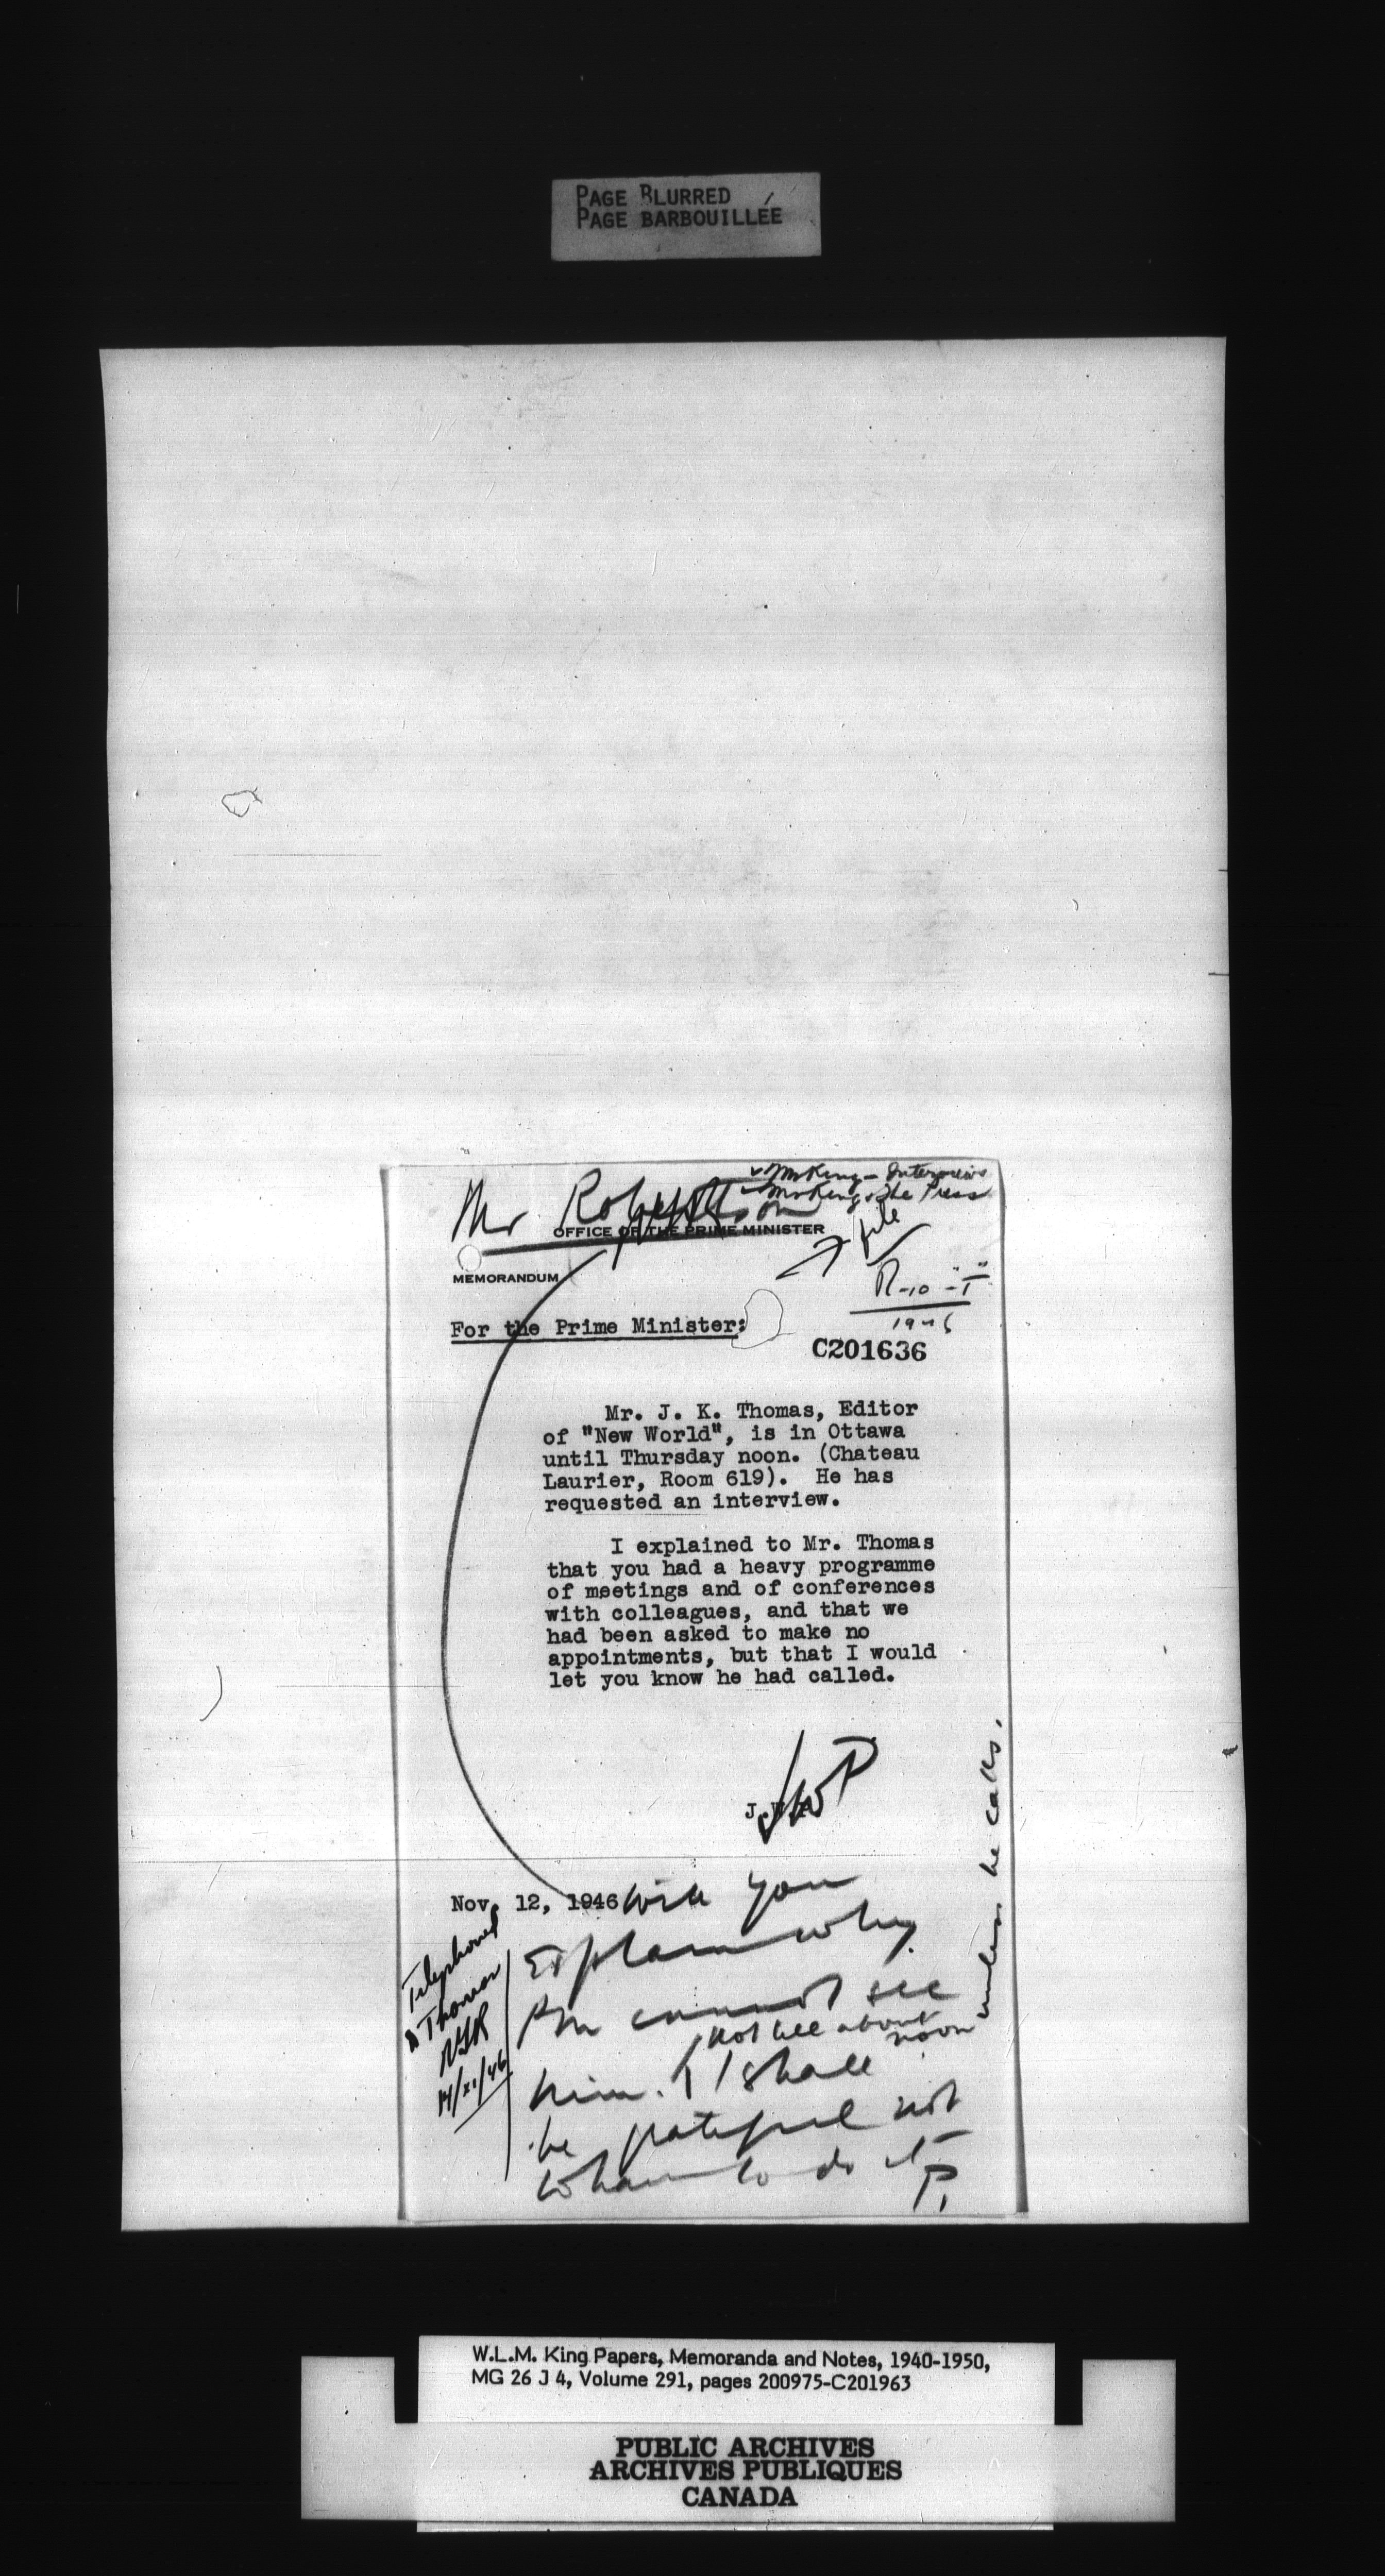 PAGE BLURRED
PAGE BARBOUILLÉE
Mr Robertson
Mr King - Interviews
Mr King & the Press
OFFICE OF THE PRIME MINISTER
file
MEMORANDUM
R-10-"I"
1946
For the Prime Minister:
C201636
Mr. J. K. Thomas, Editor
of "New World", is in Ottawa
until Thursday noon. (Chateau
Laurier, Room 619). He has
requested an interview.
I explained to Mr. Thomas
that you had a heavy programme
of meetings and of conferences
with colleagues, and that we
had been asked to make no
appointments, but that I would
let you know he had called.
JWP
J.W.P.
Nov. 12, 1946
will you
explain why
P.M. cannot see
him. I shall
not till about noon
unless he calls.
be grateful not
to have to do it
Telephoned
Thomas
14/xi/46
W.L.M. King Papers, Memoranda and Notes, 1940-1950,
MG 26 J 4, Volume 291, pages 200975-C201963
PUBLIC ARCHIVES
ARCHIVES PUBLIQUES
CANADA